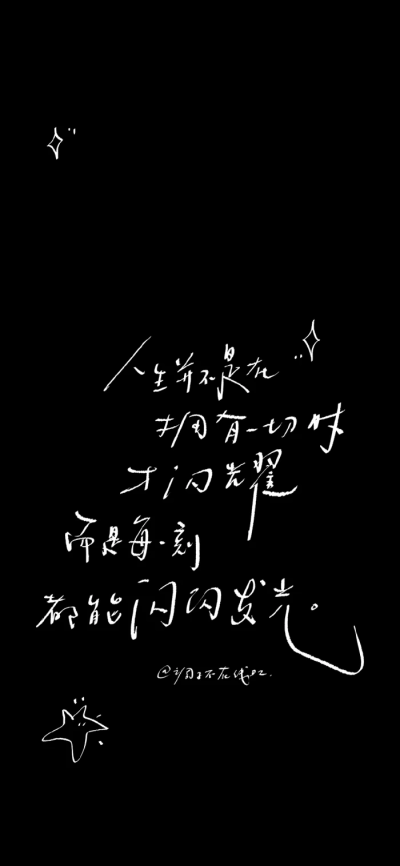 人生并不是在
拥有一切时
才闪光耀
而是每一刻
都能闪闪发光。